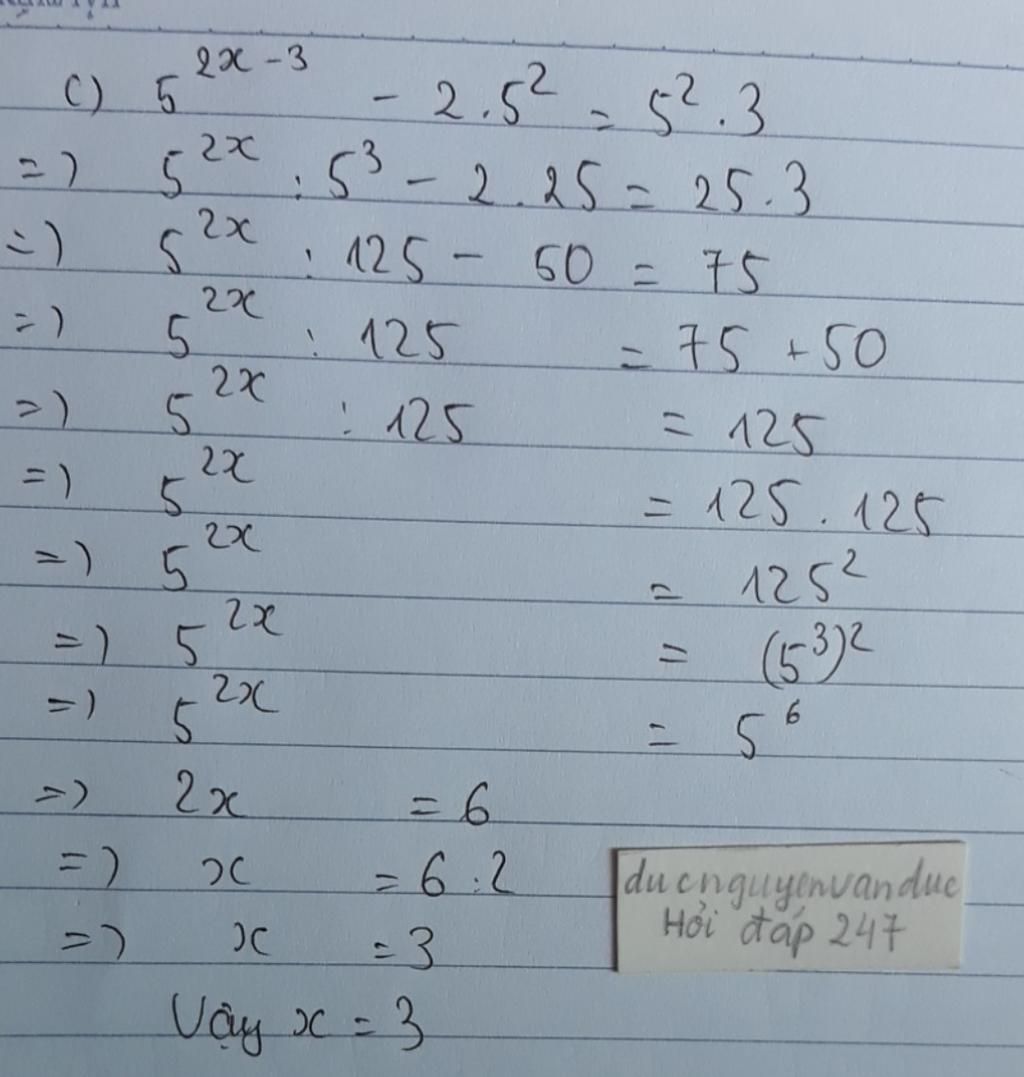 c) 5^{2x-3} - 2.5^2 = 5^2.3
=) 5^{2x} : 5^3 - 2.25 = 25.3
=) 5^{2x} : 125 - 50 = 75
=) 5^{2x} : 125 = 75 + 50
=) 5^{2x} : 125 = 125
=) 5^{2x} = 125.125
=) 5^{2x} = 125^2
=) 5^{2x} = (5^3)^2
=) 5^{2x} = 5^6
=) 2x = 6
=) x = 6:2
=) x = 3
Vậy x = 3
ducnguyenvanduc
Hỏi đáp 247